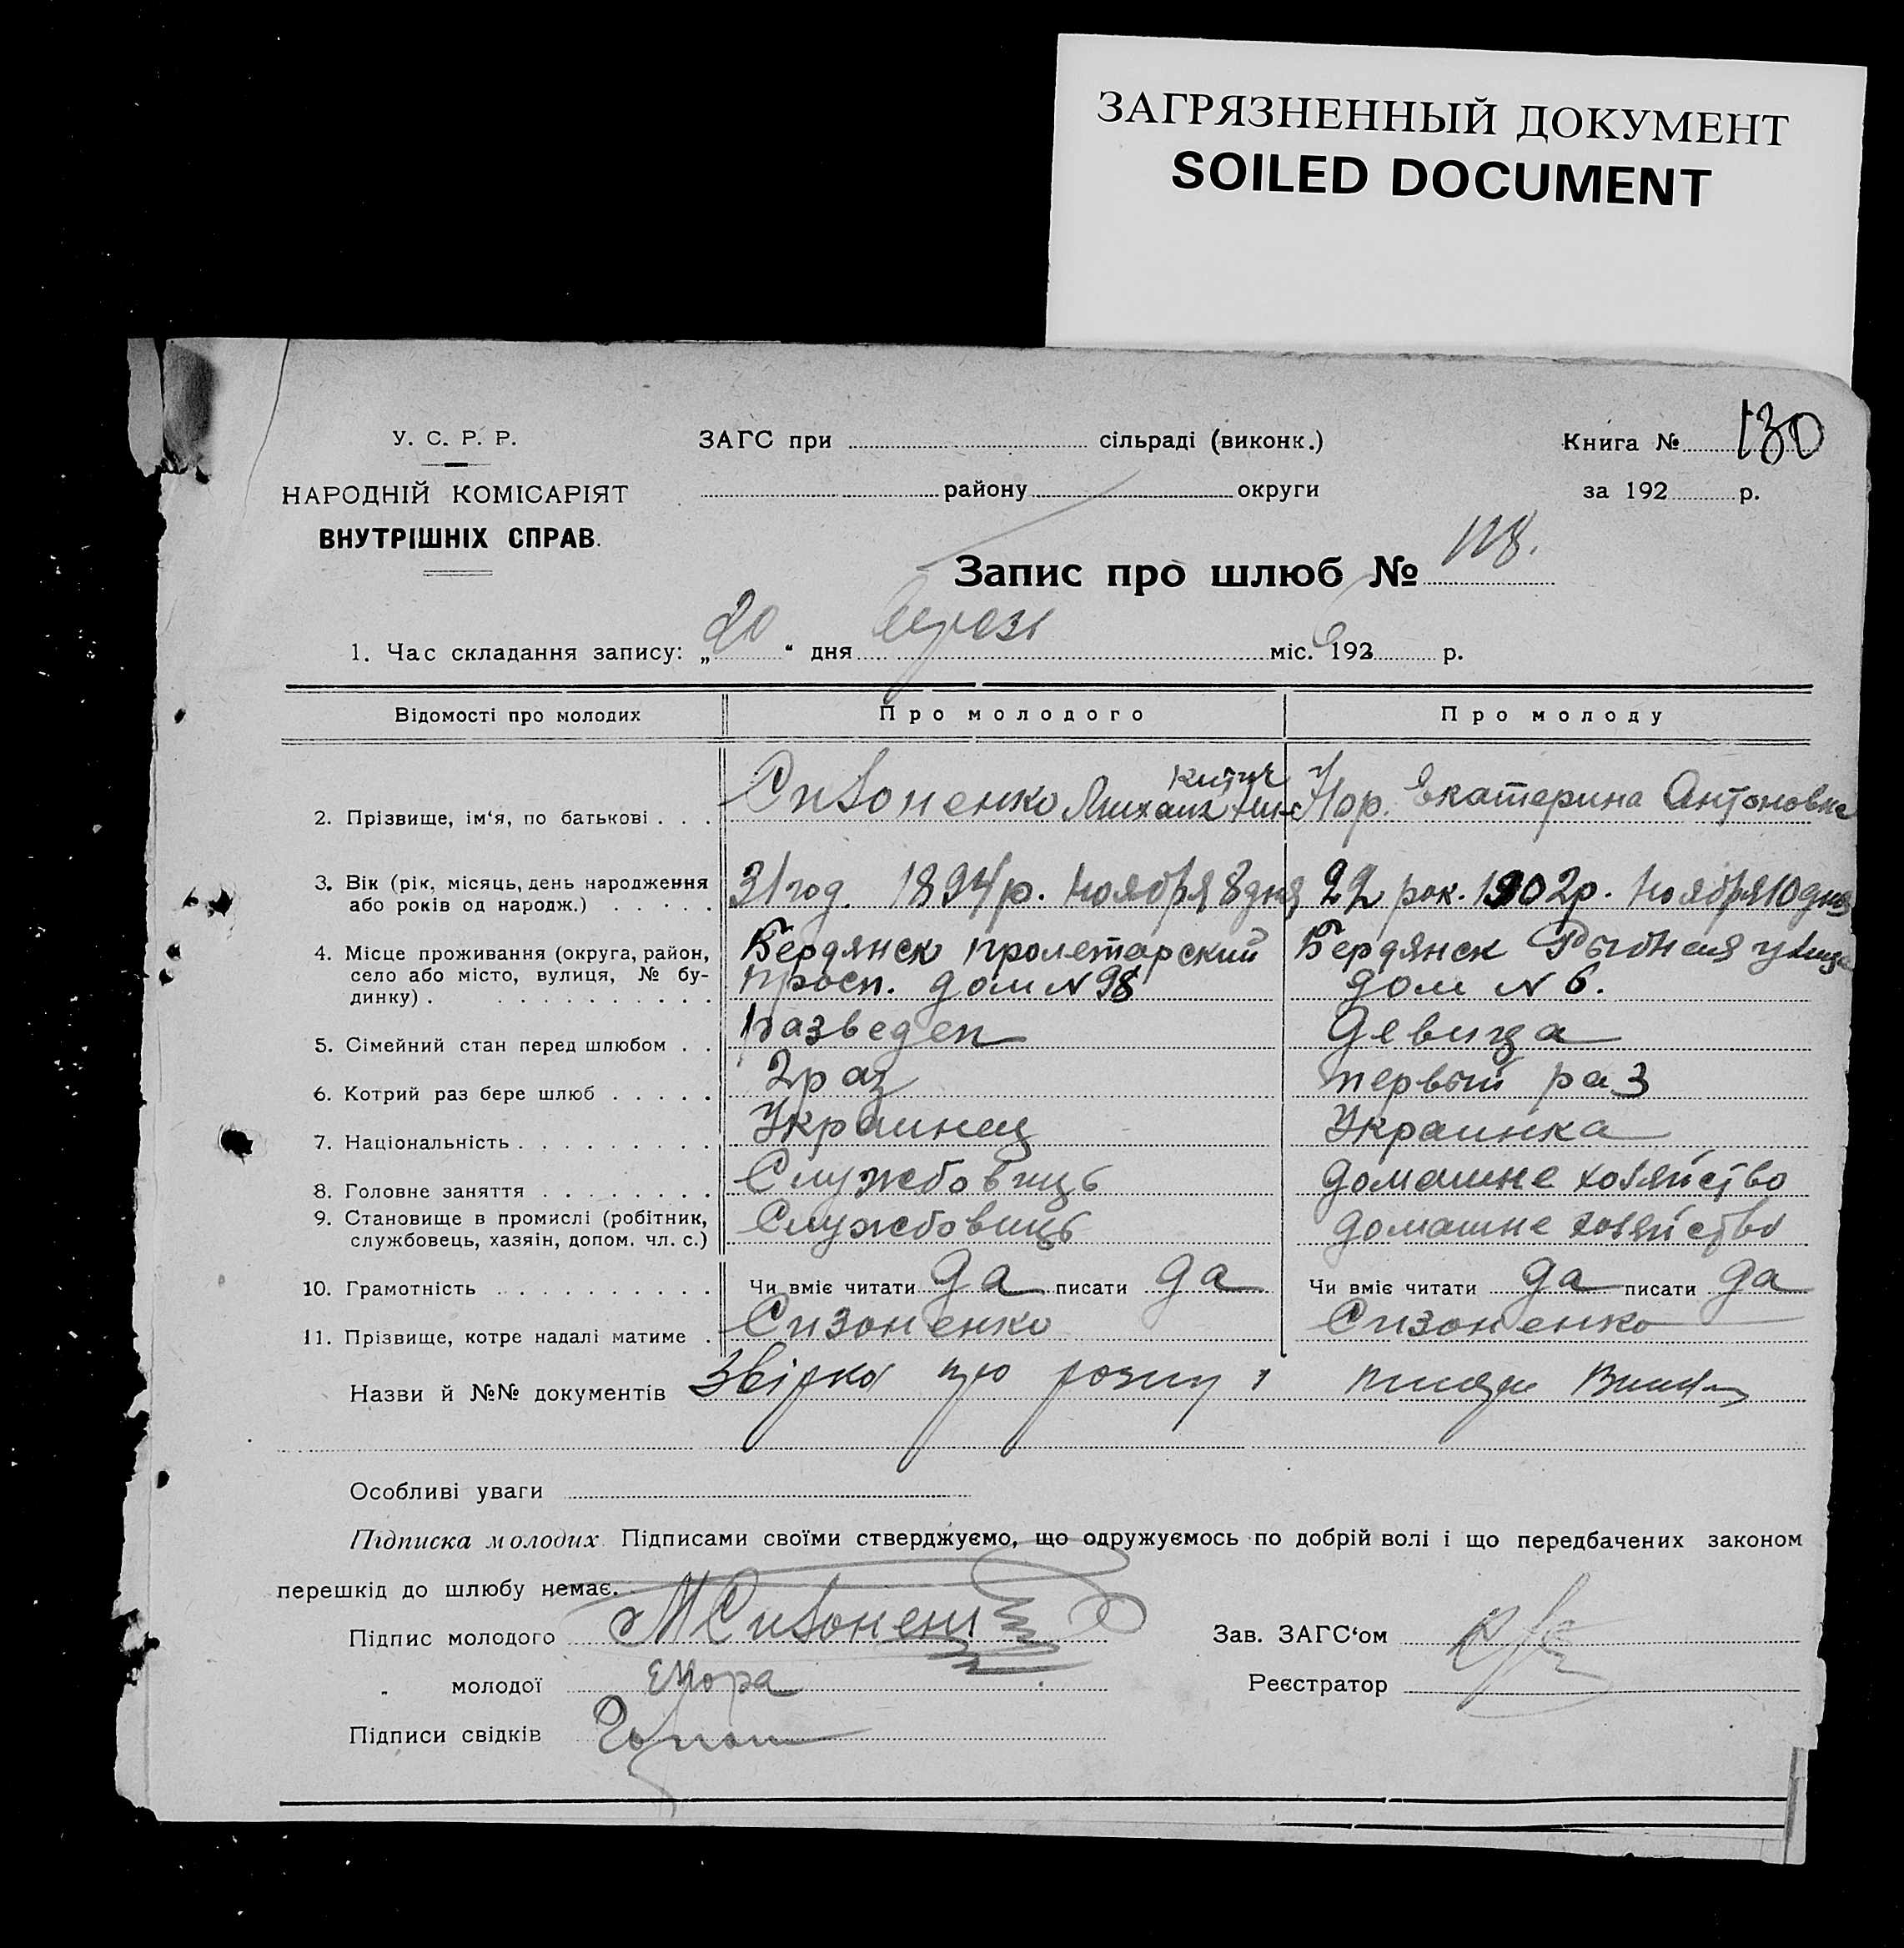 ЗАГРЯЗНЕННЫЙ ДОКУМЕНТ
SOILED DOCUMENT
У. С. Р. Р.
НАРОДНІЙ КОМІСАРІЯТ
ВНУТРІШНІХ СПРАВ.
ЗАГС при сільраді (виконк.)
району округи
Книга № 130
за 192 р.
Запис про шлюб № 118.
1. Час складання запису: „20“ дня міс. 192 р.
Відомості про молодих Про молодого Про молоду
2. Прізвище, ім‘я, по батькові . . . Сизоненко Михаил Нор. Екатерина Антоновна
3. Вік (рік, місяць, день народження 31 год. 1894 р. ноября 8 дня 22 рок. 1902 р. ноября 10 дня
або років од народж.) . . . . .
4. Місце проживання (округа, район, Бердянск пролетарский Бердянск Рыбная улица
село або місто, вулиця, № бу- просп. дом N 98 дом N 6.
динку) . . . . . . . . . . .
5. Сімейний стан перед шлюбом . . Разведен Девица
6. Котрий раз бере шлюб . . . . . 2 раз первый раз
7. Національність . . . . . . . . . Украинец Украинка
8. Головне заняття . . . . . . . . Службовиць домашне хозяйство
9. Становище в промислі (робітник, Службовиць домашне хозяйство
службовець, хазяін, допом. чл. с.)
10. Грамотність . . . . . . . . . . Чи вміє читати да писати да Чи вміє читати да писати да
11. Прізвище, котре надалі матиме . Сизоненко Сизоненко
Назви й №№ документів
Особливі уваги
Підписка молодих. Підписами своїми стверджуємо, що одружуємось по добрій волі і що передбачених законом
перешкід до шлюбу немає.
Підпис молодого МСизонен Зав. ЗАГС‘ом
„ молодої ЕНора Реєстратор
Підписи свідків